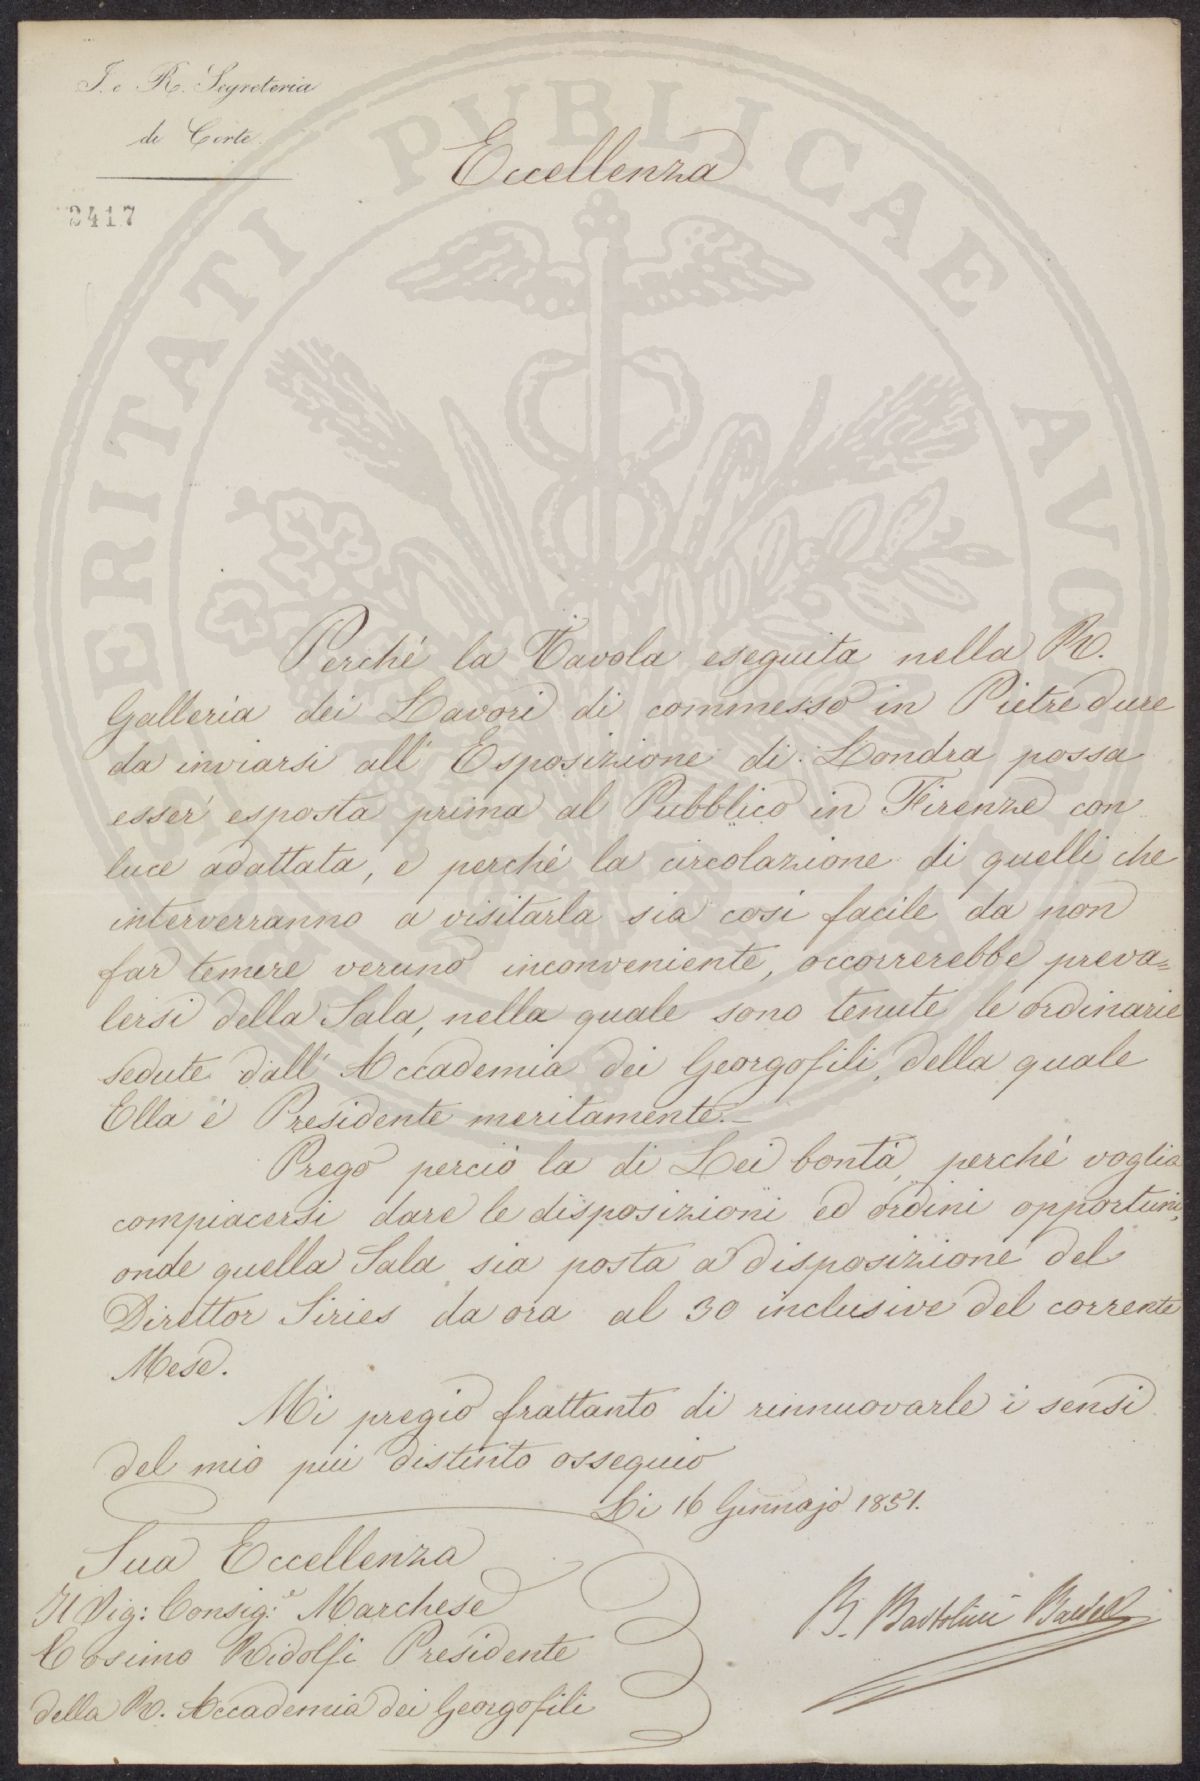 I. e R. Segreteria
di Corte.
2417
Eccellenza
Perché la Tavola eseguita nella R.
Galleria dei Lavori di commesso in Pietre dure
da inviarsi all' Esposizione di Londra possa
esser esposta prima al Pubblico in Firenze con
luce adattata, e perché la circolazione di quelli che
interverranno a visitarla sia così facile da non
far temere veruno inconveniente, occorrerebbe preva=
lersi della Sala, nella quale sono tenute le ordinarie
sedute dall' Accademia dei Georgofili, della quale
Ella é Presidente meritamente.–
Prego perciò la di Lei bontà, perché voglia
compiacersi dare le disposizioni ed ordini opportuni,
onde quella Sala sia posta a disposizione del
Direttor Siries da ora al 30 inclusive del corrente
Mese.
Mi pregio frattanto di rinnuovarle i sensi
del mio più distinto ossequio
Li 16 Gennajo 1851.
Sua Eccellenza
Il Sig: Consig:e Marchese
Cosimo Ridolfi Presidente
della R. Accademia dei Georgofili
B. Bartolini Baldelli
PROSPERITATI PUBLICAE AVGENDAE